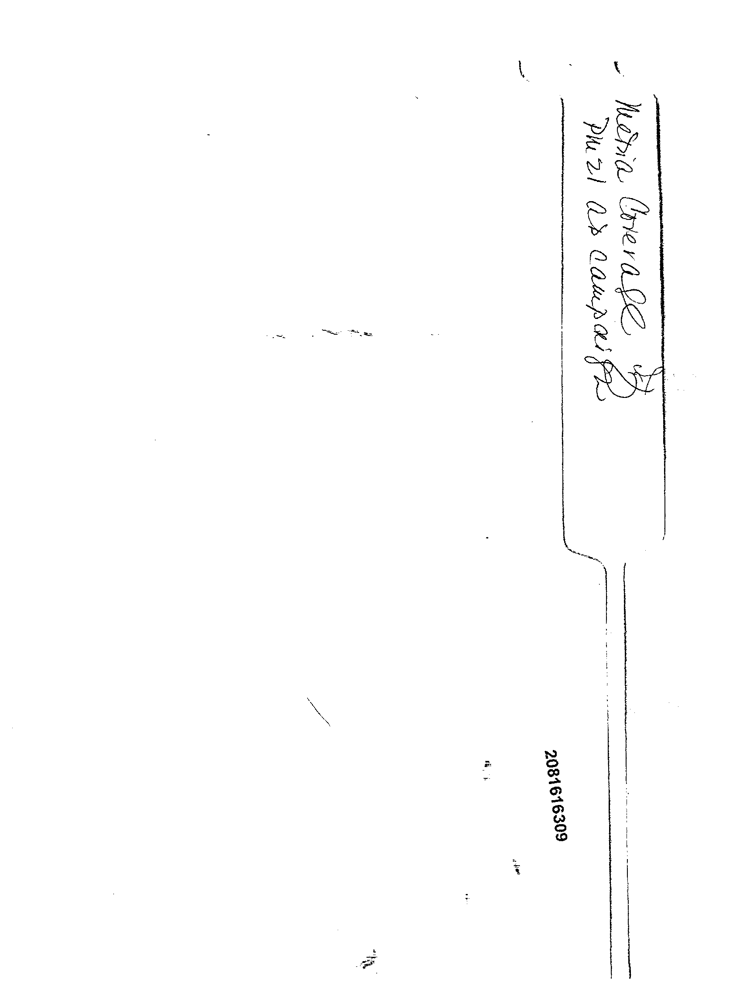 Media Coverage of
PM21 ad campaign
2081616309